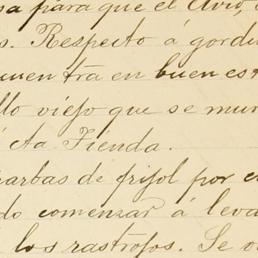 para que el Avío,
Respecto á gordu
en buen est
llo viejo que se mur
Cta Tienda.
barbas de frijol por
do comenzar á leva
los rastrojos. Se